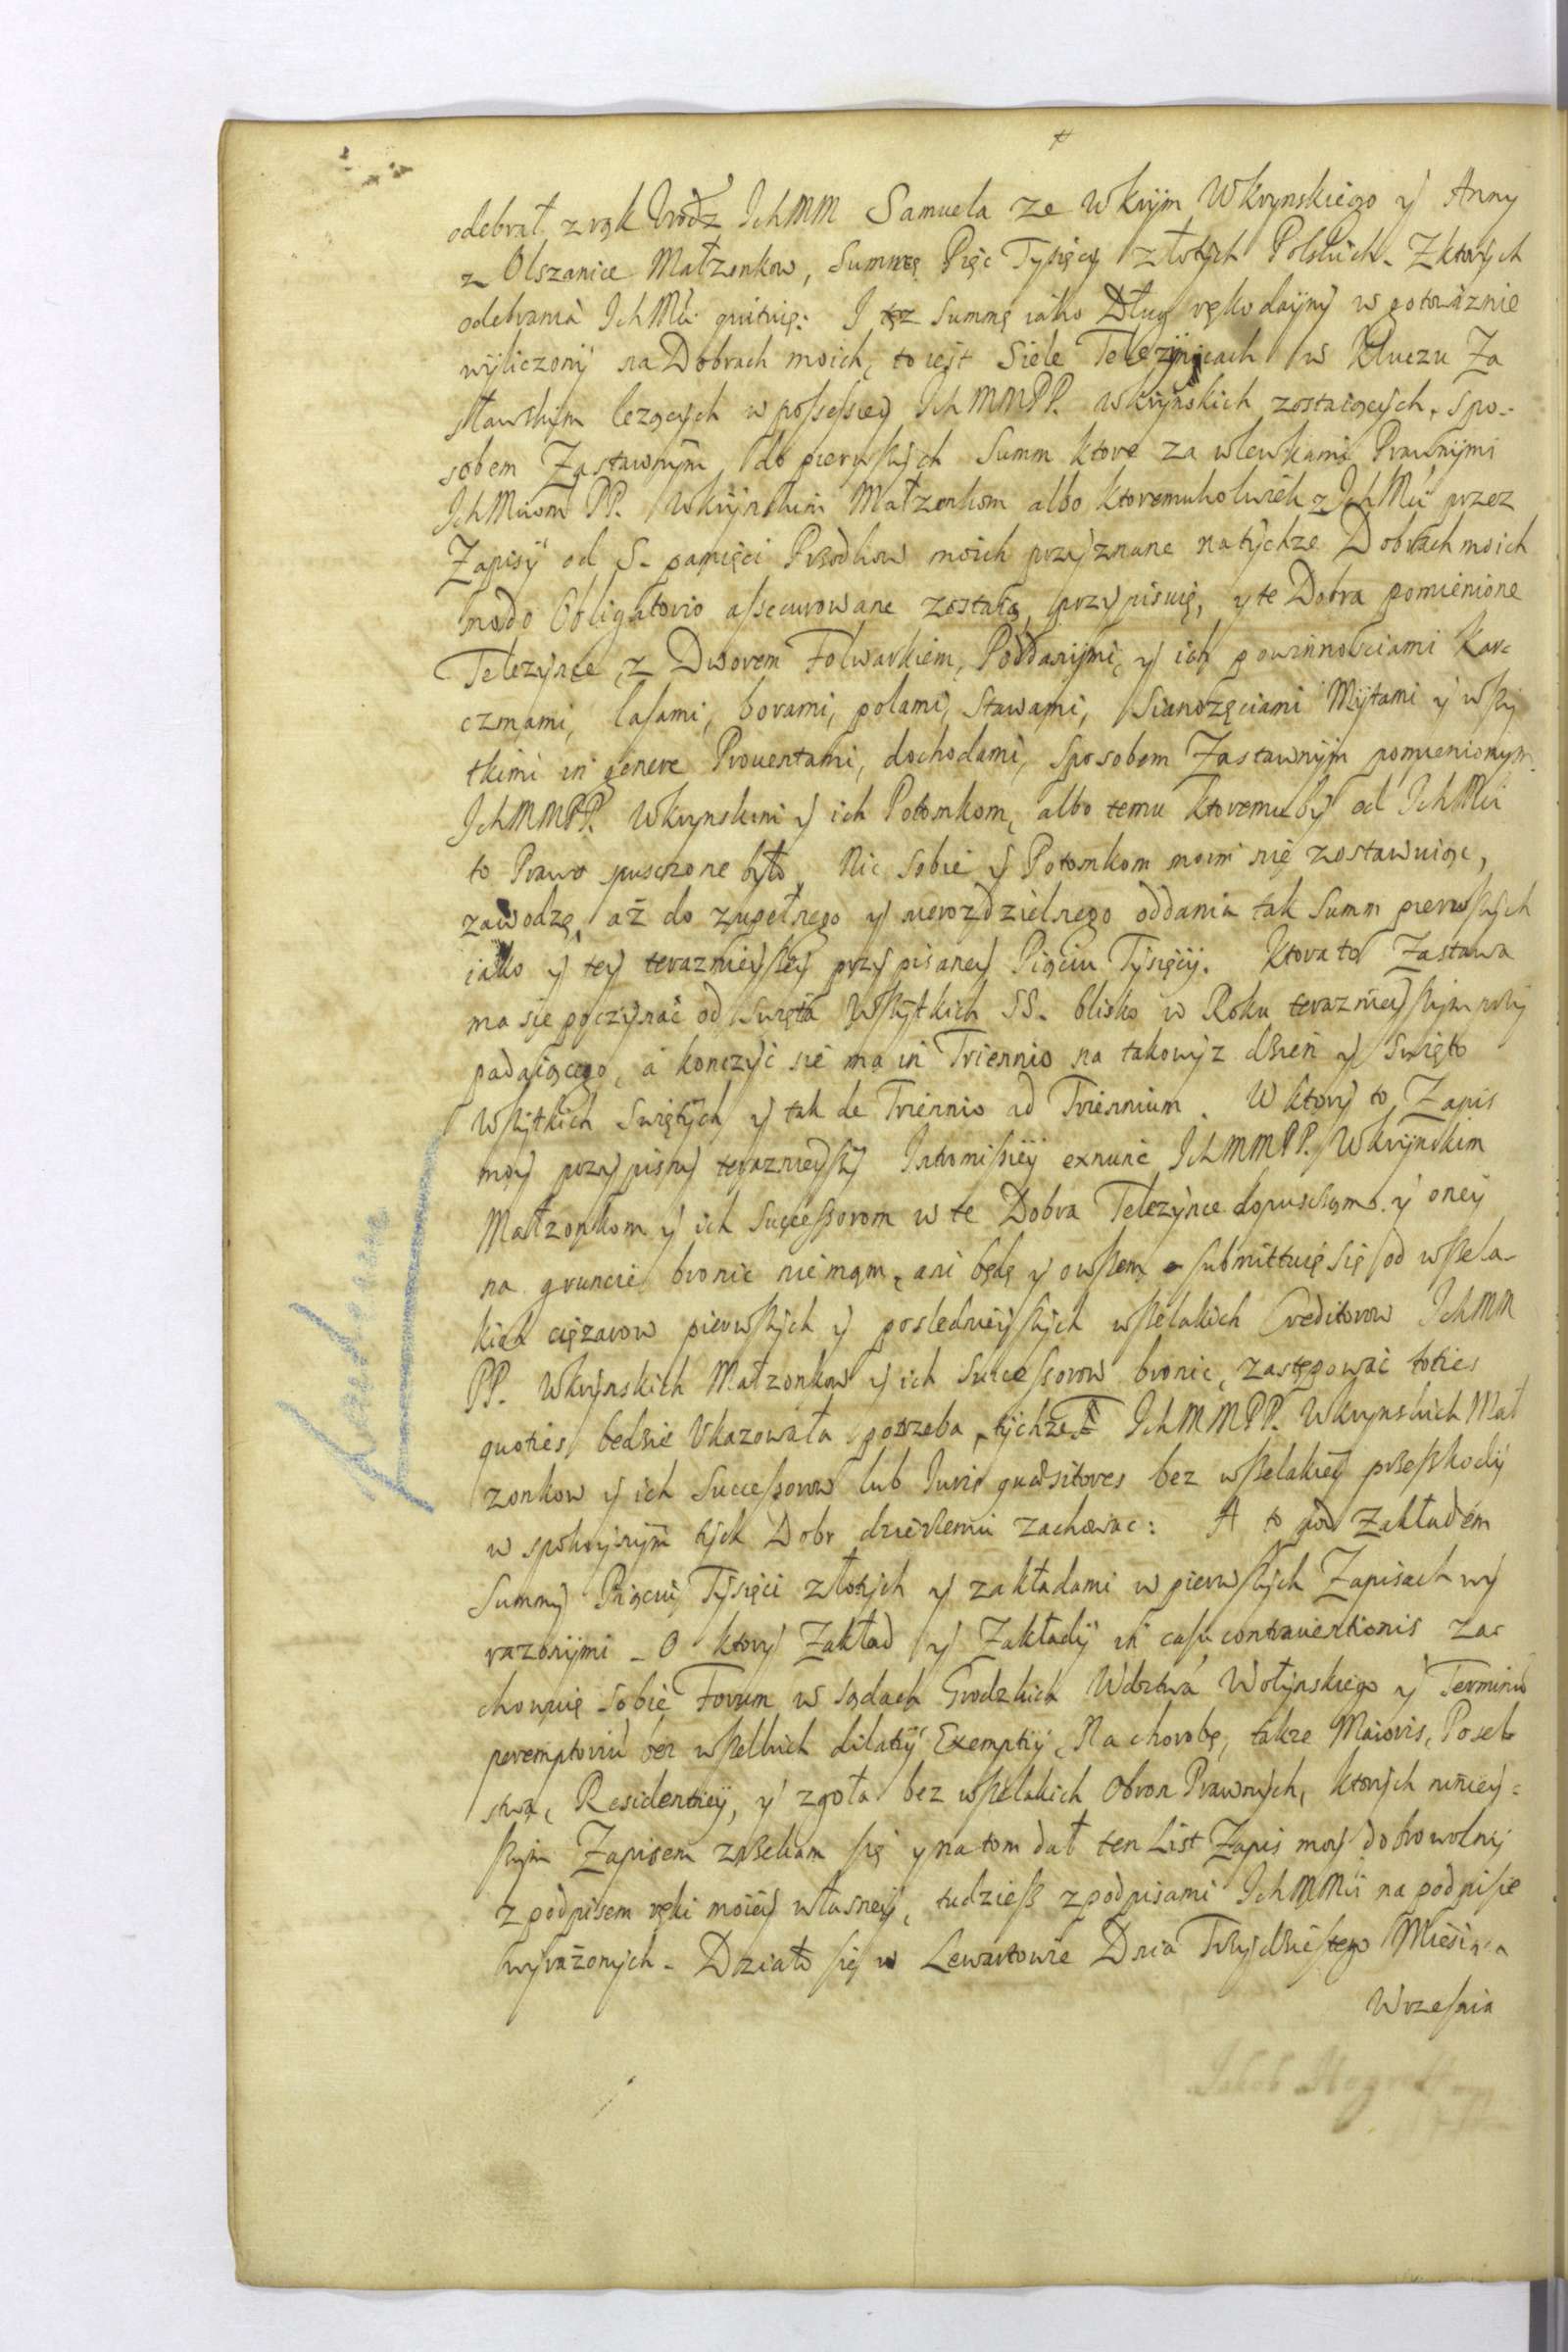 odebrał z rąk Vrodz IchMM Samuela ze Wkryn Wkrynskiego y Anny
z Olszanice Małzonkow, Summę Pięc Tysięcy złotych Polskich. Z ktorych
odebrania IchMći quituię: I tęz Summę iako Dług rękodayny w gotowiznie
wyliczony na Dobrach moich, to iest Siele Telezyncach w Kluczu Za
sławskim lezących w possessiey IchMMPP. Wkrynskich zostaiących, spo-
sobem Zastawnym, do pierwszych Summ ktore za wlewkami Prawnymi
IchMciom PP. Wkrynskim Małzonkom albo ktoremukolwiek z IchMći przez
Zapisy od S. pamięci Przodkow moich przyznane na tychze Dobrach moich
modo Obligatorio assecurowane zostaią, przypisuię, y te Dobra pomienione
Telezynce, z Dworem Folwarkiem, Poddanymi, y ich powinnosciami Kar=
czmami, lasami, borami, polami, stawami, sianozęciami Mytami y wszy
tkimi in genere Prouentami, dochodami, sposobem Zastawnym pomienionym
IchMMPP. Wkrynskim y ich Potomkom, albo temu ktoremuby od IchMći
to Prawo spuszczone było, Nic sobie y Potomkom moim nie zostawuiąc,
zawodzę, aż do zupełnego y nierozdzielnego oddania tak Summ pierwszych
iako y tey terazniejszey przypisaney Pięciu Tysięcy. Ktora to Zastawa
ma się poczynać od Swięta Wszytkich SS. blisko w Roku terazniejszym przy
padaiącego, a konczyć się ma in Triennio na takowyz dzien y Swięto
Wszytkich Swiętych y tak de Triennio ad Triennium. W ktory to Zapis
moy przypisny terazniejszy Intromissiey exnunc IchMMPP. Wkrynskim
Małzonkom y ich Successorom w te Dobra Telezynce dopuscilem y oney
na gruncie bronic nie mąm, ani będę y owszem submittuię się od wszela-
kich cięzarow pierwszych y posledniejszych wszelakich Creditorow IchMM
PP. Wkrynskich Małzonkow y ich Successorow bronic, zastępować toties
quoties bedzie Vkazowała potrzeba, tychze IchMMPP. Wkrynskich Mał
zonkow y ich Successorow lub Iuris quaesitores bez wszelakiey przeszkody
w spokoynym tych Dobr dzierzeniu zachowac: A to pod Zakładem
Summy Pięciu Tysięci złotych y zakładami w pierwszych Zapisach wy
razonymi. O ktory Zakład y Zakłady in casu contrauentionis za=
chowuię sobie Forum w sądach Grodzkich Wdztwa Wołynskiego y Termino
peremptorio bez wszelkich dilatiy Exemptiy, Na chorobę, takze Maioris, Posel
stwa, Residentiey, y zgoła bez wszelakich Obron Prawnych, ktorych niniey=
szym Zapisem zrzekam się y na tom dał ten List Zapis moy dobrowolny
z podpisem ręki moiey własney, tudziesz z podpisami IchMMći na podpisie
wyrażonych. Działo się w Lewartowie Dnia Trzydziestego Miesiąca
Wrzesnia